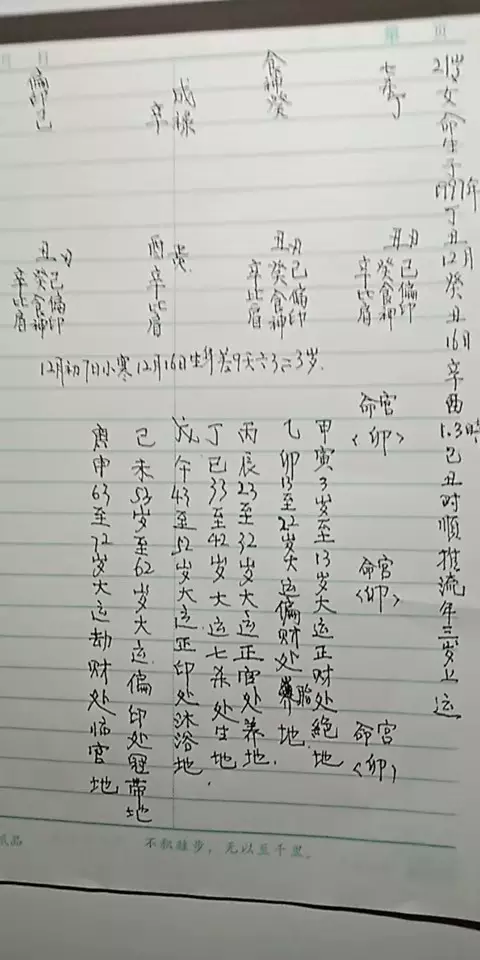 21岁女命生于1997年丁丑12月癸丑16日辛酉1.3时己丑时顺推流年三岁上运
七杀丁
食神癸
成禄
辛
偏印己
丑月
己偏印
癸食神
辛比肩
丑月
己偏印
癸食神
辛比肩
酉
辛比肩
丑月
己偏印
癸食神
辛比肩
12月初7日小寒12月16日生
3岁.
命宫
<卯>
命宫
<卯>
命宫
<卯>
甲寅3岁至13岁大运正财处绝地
乙卯13至22岁大运偏财处胎地.
丙辰23至32岁大运正官处养地.
丁巳33至42岁大运七杀处生地
戊午43至52岁大运正印处沐浴地.
己未53岁至62岁大运偏印处冠带地
庚申63至72岁大运劫财处临官地
不积跬步，无以至千里。